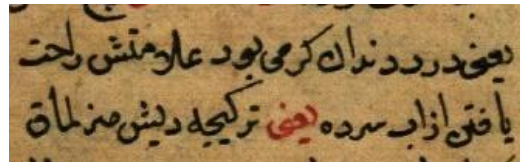 یعنی درد دندان کرمی بود علامتش راحت
یافتن از اب سرده یعنی ترکیجه دیش صزلماق